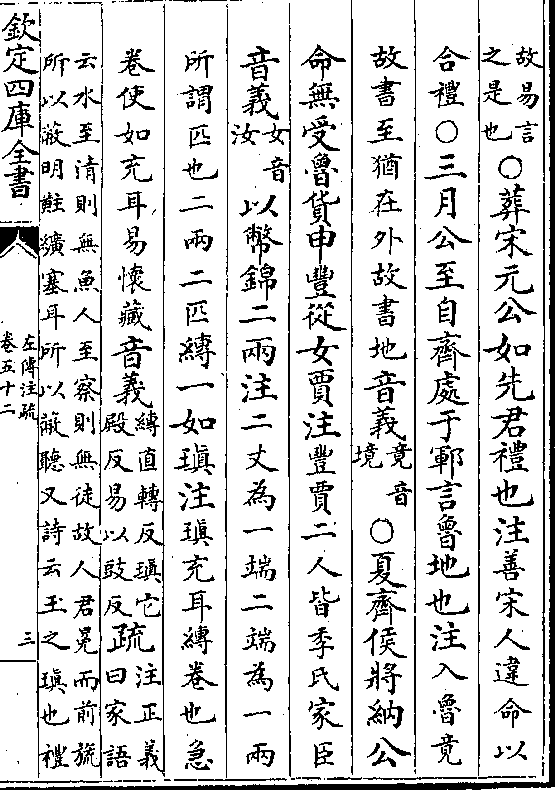 故易言
之是也○葬宋元公如先君禮也注善宋人違命以
合禮○三月公至自齊處于鄆言魯地也注入魯竟
故書至猶在外故書地音義竟音
境○夏齊侯將納公
命無受魯貨申豐從女賈注豐賈二人皆季氏家臣
音義女音
汝以幣錦二兩注二丈為一端二端為一兩
所謂匹也二兩二匹縳一如瑱注瑱充耳縳卷也急
卷使如充耳易懷藏音義縳直轉反瑱它
殿反易以豉反疏注正義
曰家語
云水至清則無魚人至察則無徒故人君冕而前旒
所以蔽明黈纊塞耳所以蔽聽又詩云玉之瑱也禮
欽定四庫全書
左傳注疏
卷五十二
三